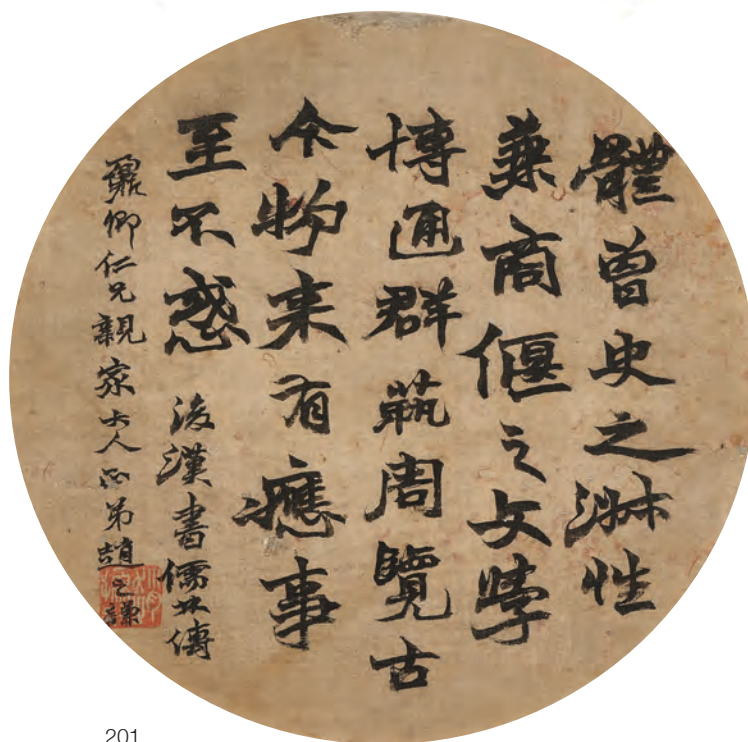 體曾史之淑性
兼商偃之文學
博通群蓺周覽古
今物来有應事
至不惑 後漢書儒林傳
鼐卿仁兄親家大人正弟趙之謙
201